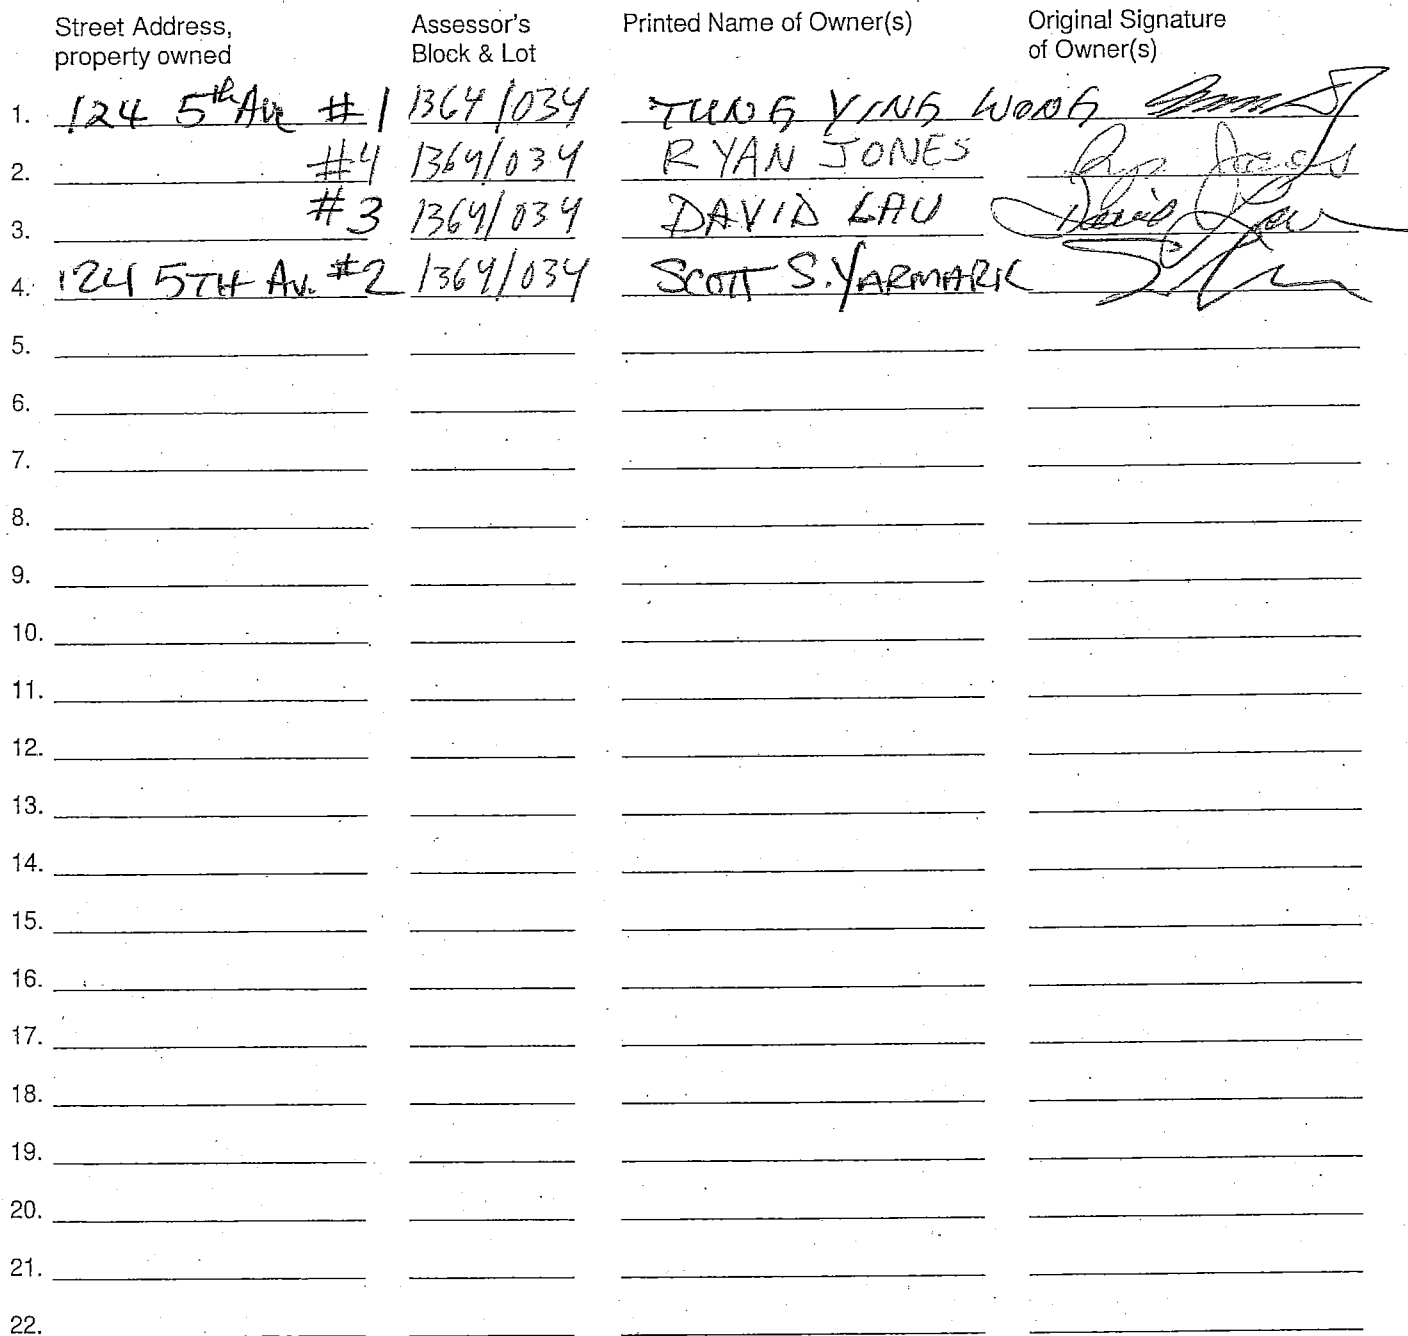 Street Address, property owned Assessor's Block & Lot Printed Name of Owner(s) Original Signature of Owner(s)
1. 124 5th Ave #1 1364/034 TUNG YING WONG
2. #4 1364/034 RYAN JONES Ryan Jones
3. #3 1364/034 DAVID LAU David Lau
4. 124 5TH Av. #2 1364/034 SCOTT S. YARMARK
5.
6.
7.
8.
9.
10.
11.
12.
13.
14.
15.
16.
17.
18.
19.
20.
21.
22.